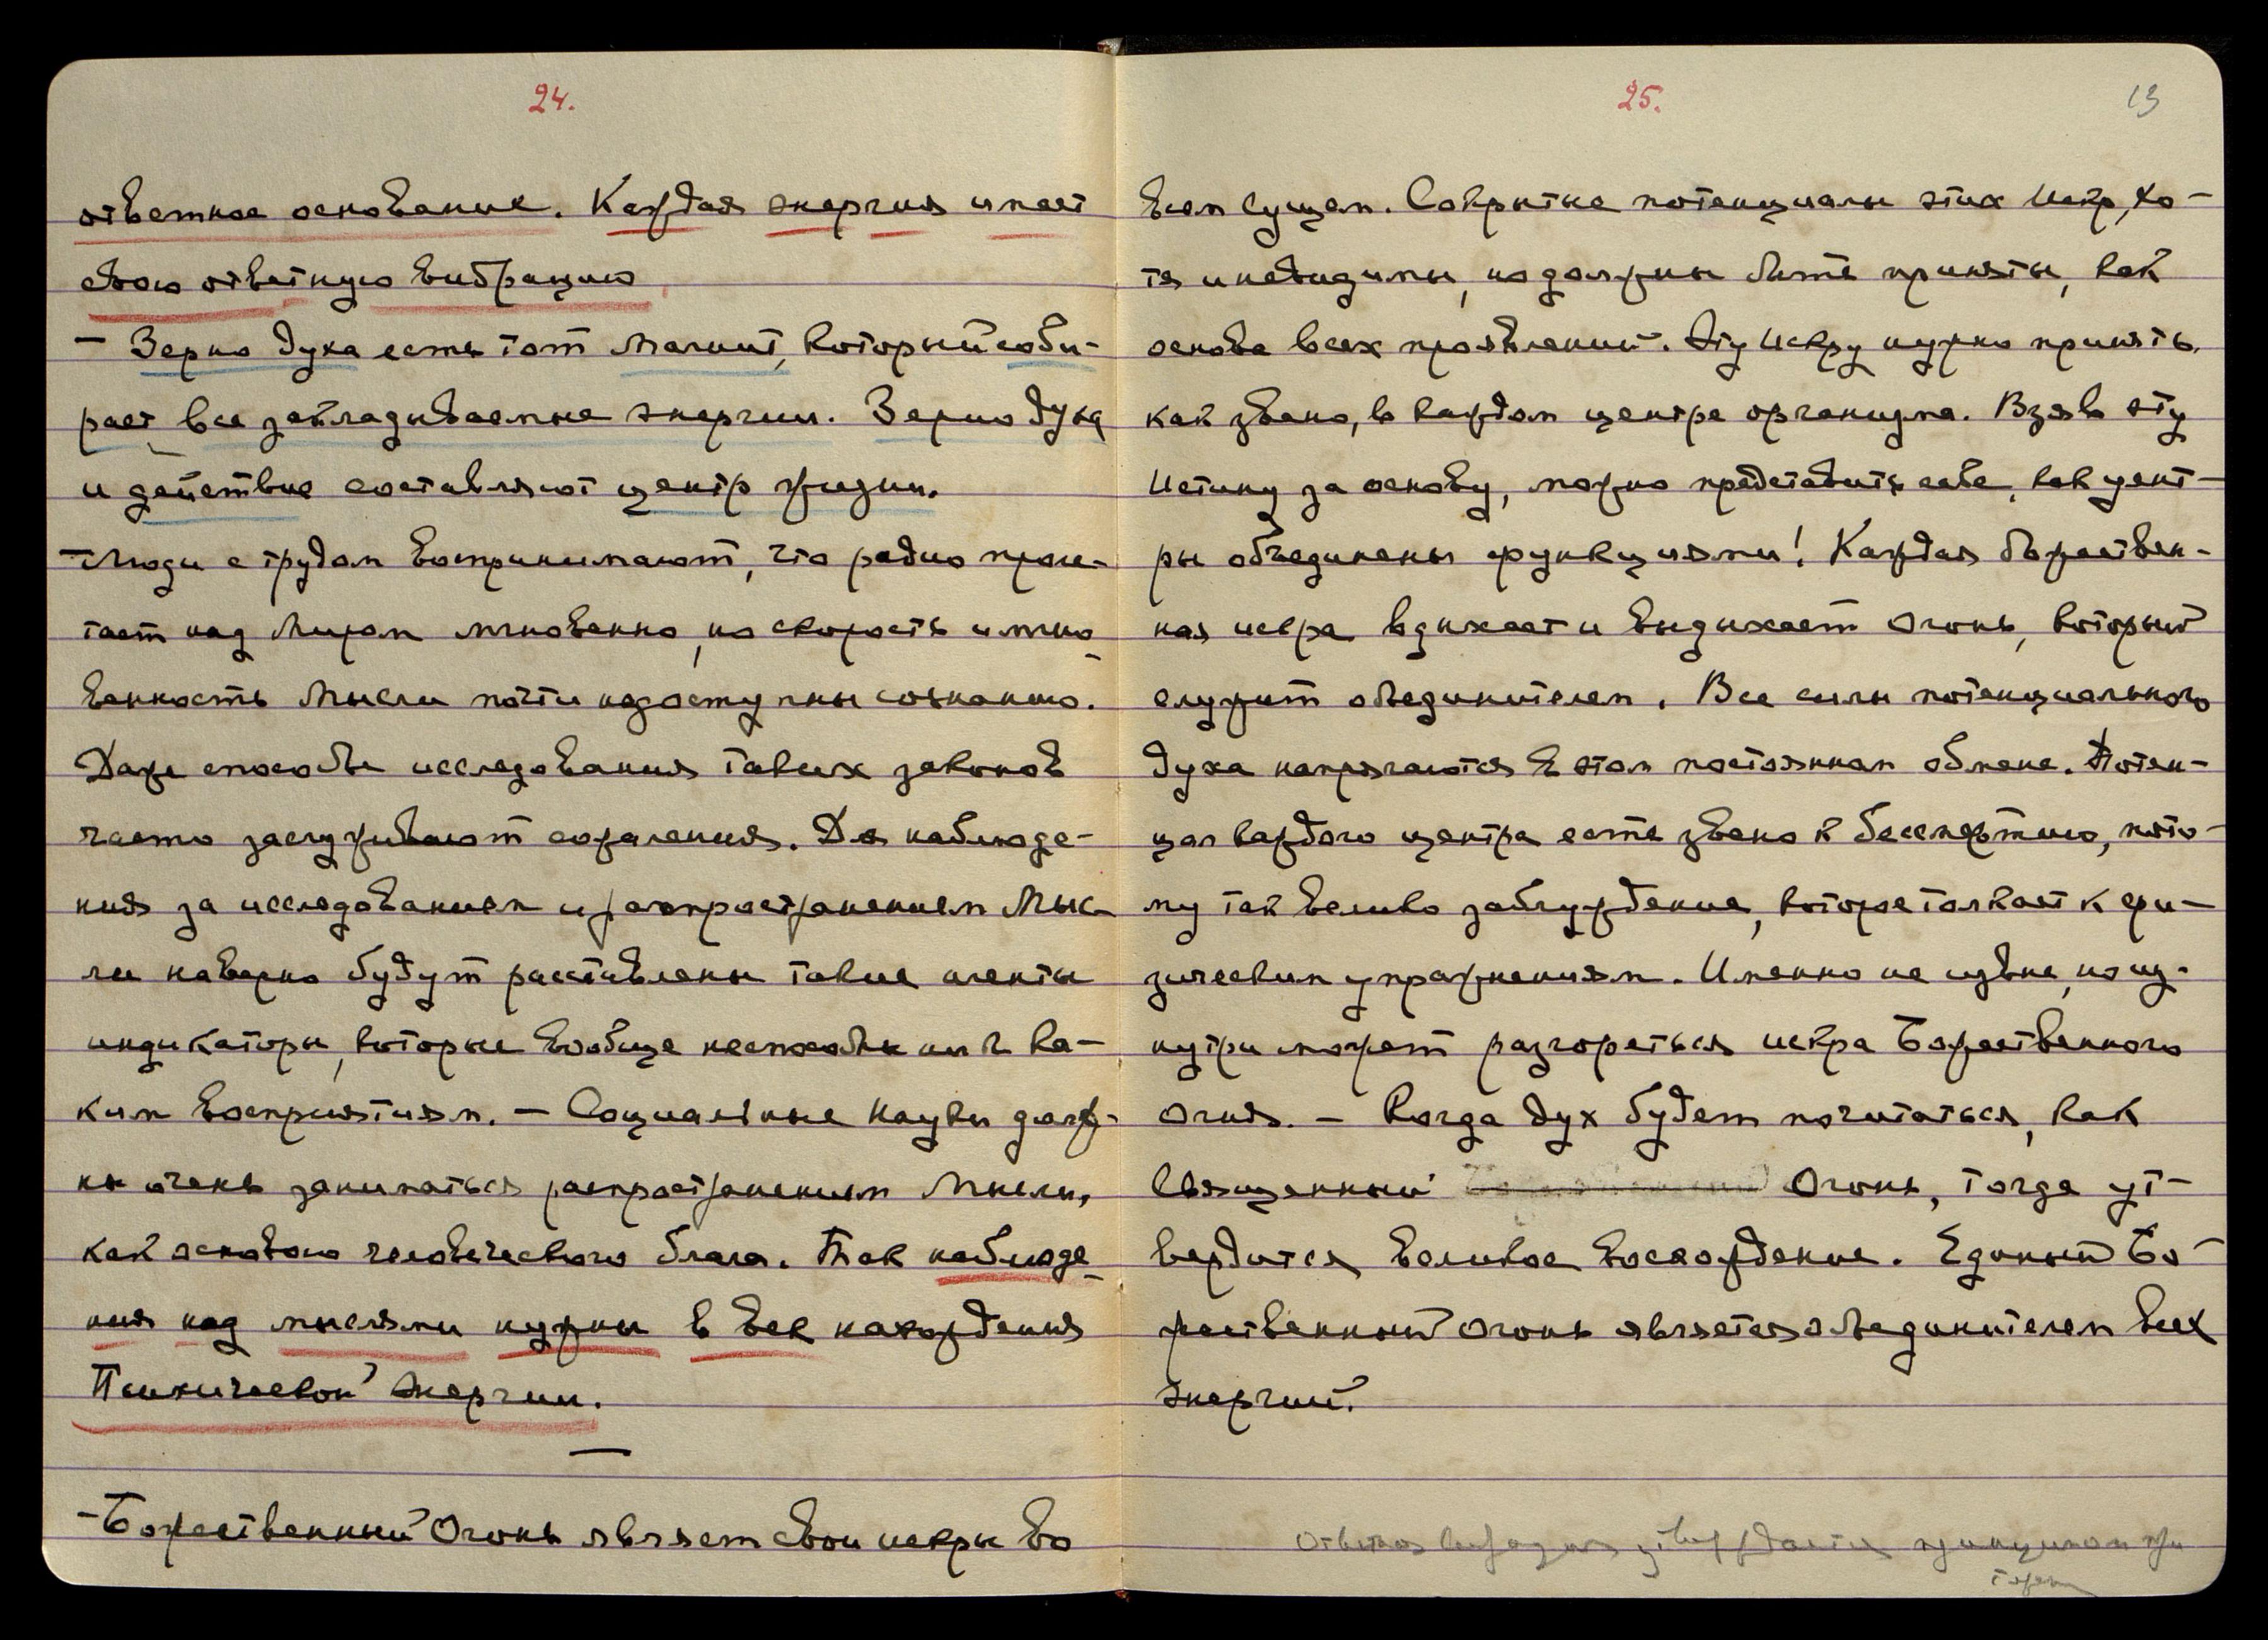 24.
ответное основание. Каждая энергия имеет
свою ответную вибрацию
— Зерно духа есть тот Магнит, который соби-
рает все закладываемые энергии. Зерно духа
и действие составляют центр жизни.
— Люди с трудом воспринимают, что радио проле-
тает над Миром мгновенно, но скорость и мгно-
венность Мысли почти недоступны сознанию.
Даже способы исследования таких законов
часто заслуживают сожаления. Для наблюде-
ния за исследованием и распространением Мыс-
ли наверно будут расставлены такие агенты
индикаторы, которые вообще неспособны ни к ка-
ким восприятиям. — Социальные Науки долж-
ны очень заниматься распространением Мысли,
как основою человеческого блага. Так наблюде-
ния над мыслями нужны в век нахождения
Психической Энергии.
—
— Божественный Огонь являет свои искры во
25.
13
всем Сущем. Сокрытые потенциалы этих Искр, хо-
тя и невидимы, но должны быть приняты, как
основа всех проявлений. Эту Искру нужно принять,
как звено, в каждом центре организма. Взяв эту
Истину за основу, можно представить себе, как цент-
ры объединены функциями! Каждая божествен-
ная искра вдыхает и выдыхает Огонь, который
служит объединителем. Все силы потенциального
духа напрягаются в этом постоянном обмене. Потен-
цал каждого центра есть звено к бессмертию, пото-
му так велико заблуждение, которое толкает к фи-
зическим упражнениям. Именно не извне, но из-
нутри может разгореться искра Божественного
Огня. — Когда дух будет почитаться, как
Священный Огонь, тогда ут-
вердится великое восхождение. Единый Бо-
жественный Огонь является объединителем всех
Энергий.
утверждается принципом